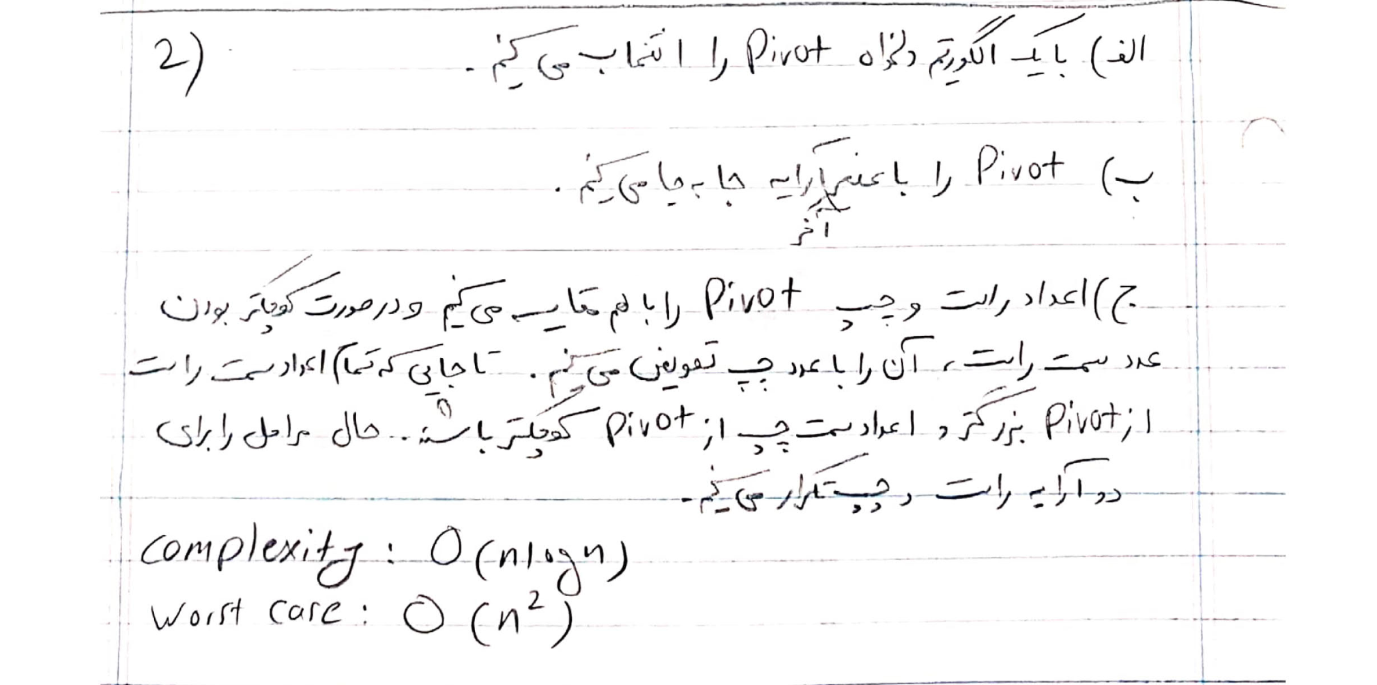 2)
الف) با یک الگوریتم دلخواه Pivot را انتخاب می کنیم.
ب) Pivot را با عنصر آخر آرایه جا به جا می کنیم.
ج) اعداد راست و چپ Pivot را با هم مقایسه می کنیم و درصورت کوچکتر بودن
عدد سمت راست، آن را با عدد چپ تعویض می کنیم. تا جایی که تمام اعداد سمت راست
از Pivot بزرگتر و اعداد سمت چپ از Pivot کوچکتر باشند. حال مراحل را برای
دو آرایه راست و چپ تکرار می کنیم.
complexity: O(nlogn)
Worst case: O(n²)